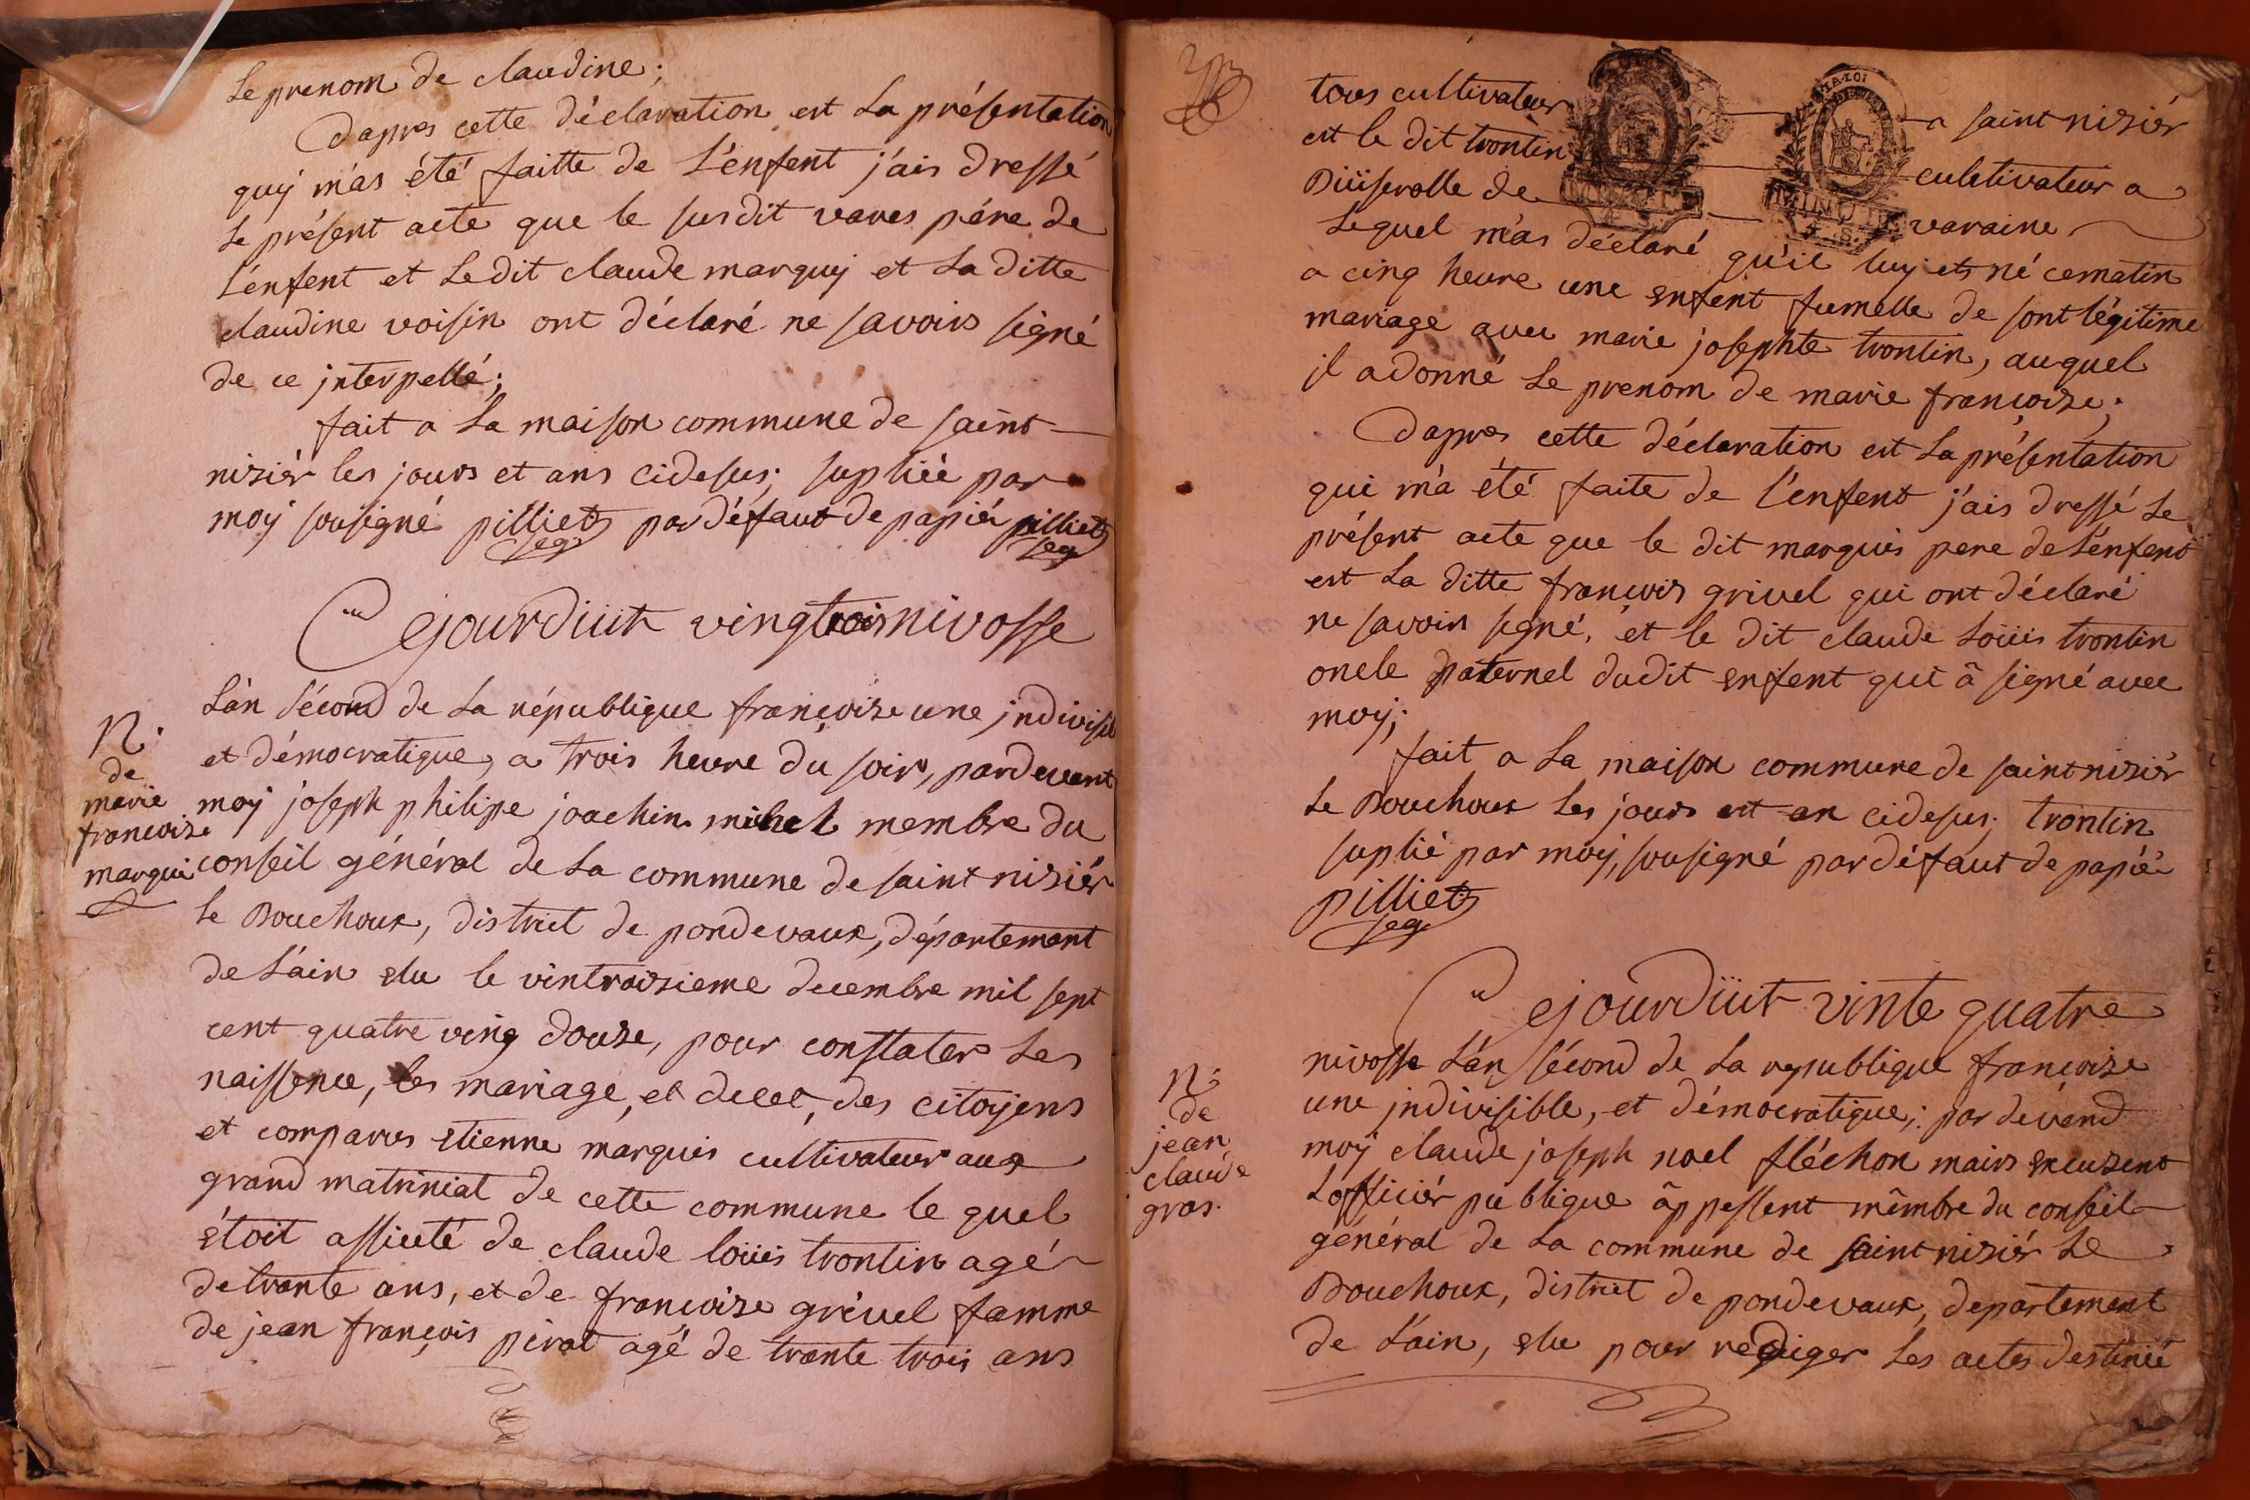 Le prenom de claudine;
Dapres cette déclaration est La présentation
quÿ m'as été faitte de L'enfent j'ais dressé
Le présent acte que le susdit vares pére de
L'enfent et Ledit claude marquÿ et La ditte
claudine voisin ont déclaré ne savoirs signé
de ce interpellé;
fait a La maison commune de saint
nisiér les jours et ans cidesus; supliée par
moÿ sousigné pilliet par défaut de papiér pilliet
seg seg
Cejourdüit vingtrois nivosse
L'an sécond de La république françoise une jndivisib
et démocratique, a trois heure du soir, pardevent
moÿ joseph philipe joachin michel membre du
conseil général de La commune de saint nisiér
le Bouchoux, district de pondevaux, département
de L'ain elu le vintroisieme decembre mil sept
cent quatre ving douze, pour constater Les
naissence, les mariage, et decet, des citoÿens
et comparus etienne marquis cultivateur aux
grand matriniat de cette commune le quel
étoit assisté de claude loüis trontin agé
de trante ans, et de françoise grivel famme
de jean françois pirat agé de trante trois ans
N.
de
marie
françoise
marqui
tous cultivateur a saint nisiér
est le dit trontin cultivateur a
Büisserolle de varaine
MINUTE
LA LOI
MINUTE
4 S.
Lequel m'as déclaré qu'il luÿ est né cematin
a cinq heure une enfent fumelle de sont légitime
mariage avec marie josephte trontin, auquel
jl adonné Le prenom de marie françoise;
Dapres cette déclaration est La présentation
qui m'a été faite de l'enfent j'ais dressé Le
présent acte que le dit marquis pere de L'enfent
est La ditte françois grivel qui ont déclaré
ne savoir signé, et le dit claude Loüis trontin
oncle paternel dudit enfent qui â signé avec
moÿ;
fait a La maison commune de saint nisiér
Le Bouchoux Les jours est an cidesus; trontin
suplié par moÿ, sousigné par défaut de papiér
pilliet
seg
Cejourdüit vinte quatre
nivosse L'an sécond de La republique françoise
une jndivisible, et démocratique; par devend
moÿ claude joseph noel fléchon mairs excusent
L'officiér publique âppellent mêmbre du conseil
général de La commune de saint nisiér Le
Bouchoux, district de pondevaux, departement
de L'ain, elu pour rediger Les actes destinié
N.
de
jean
claude
gras.